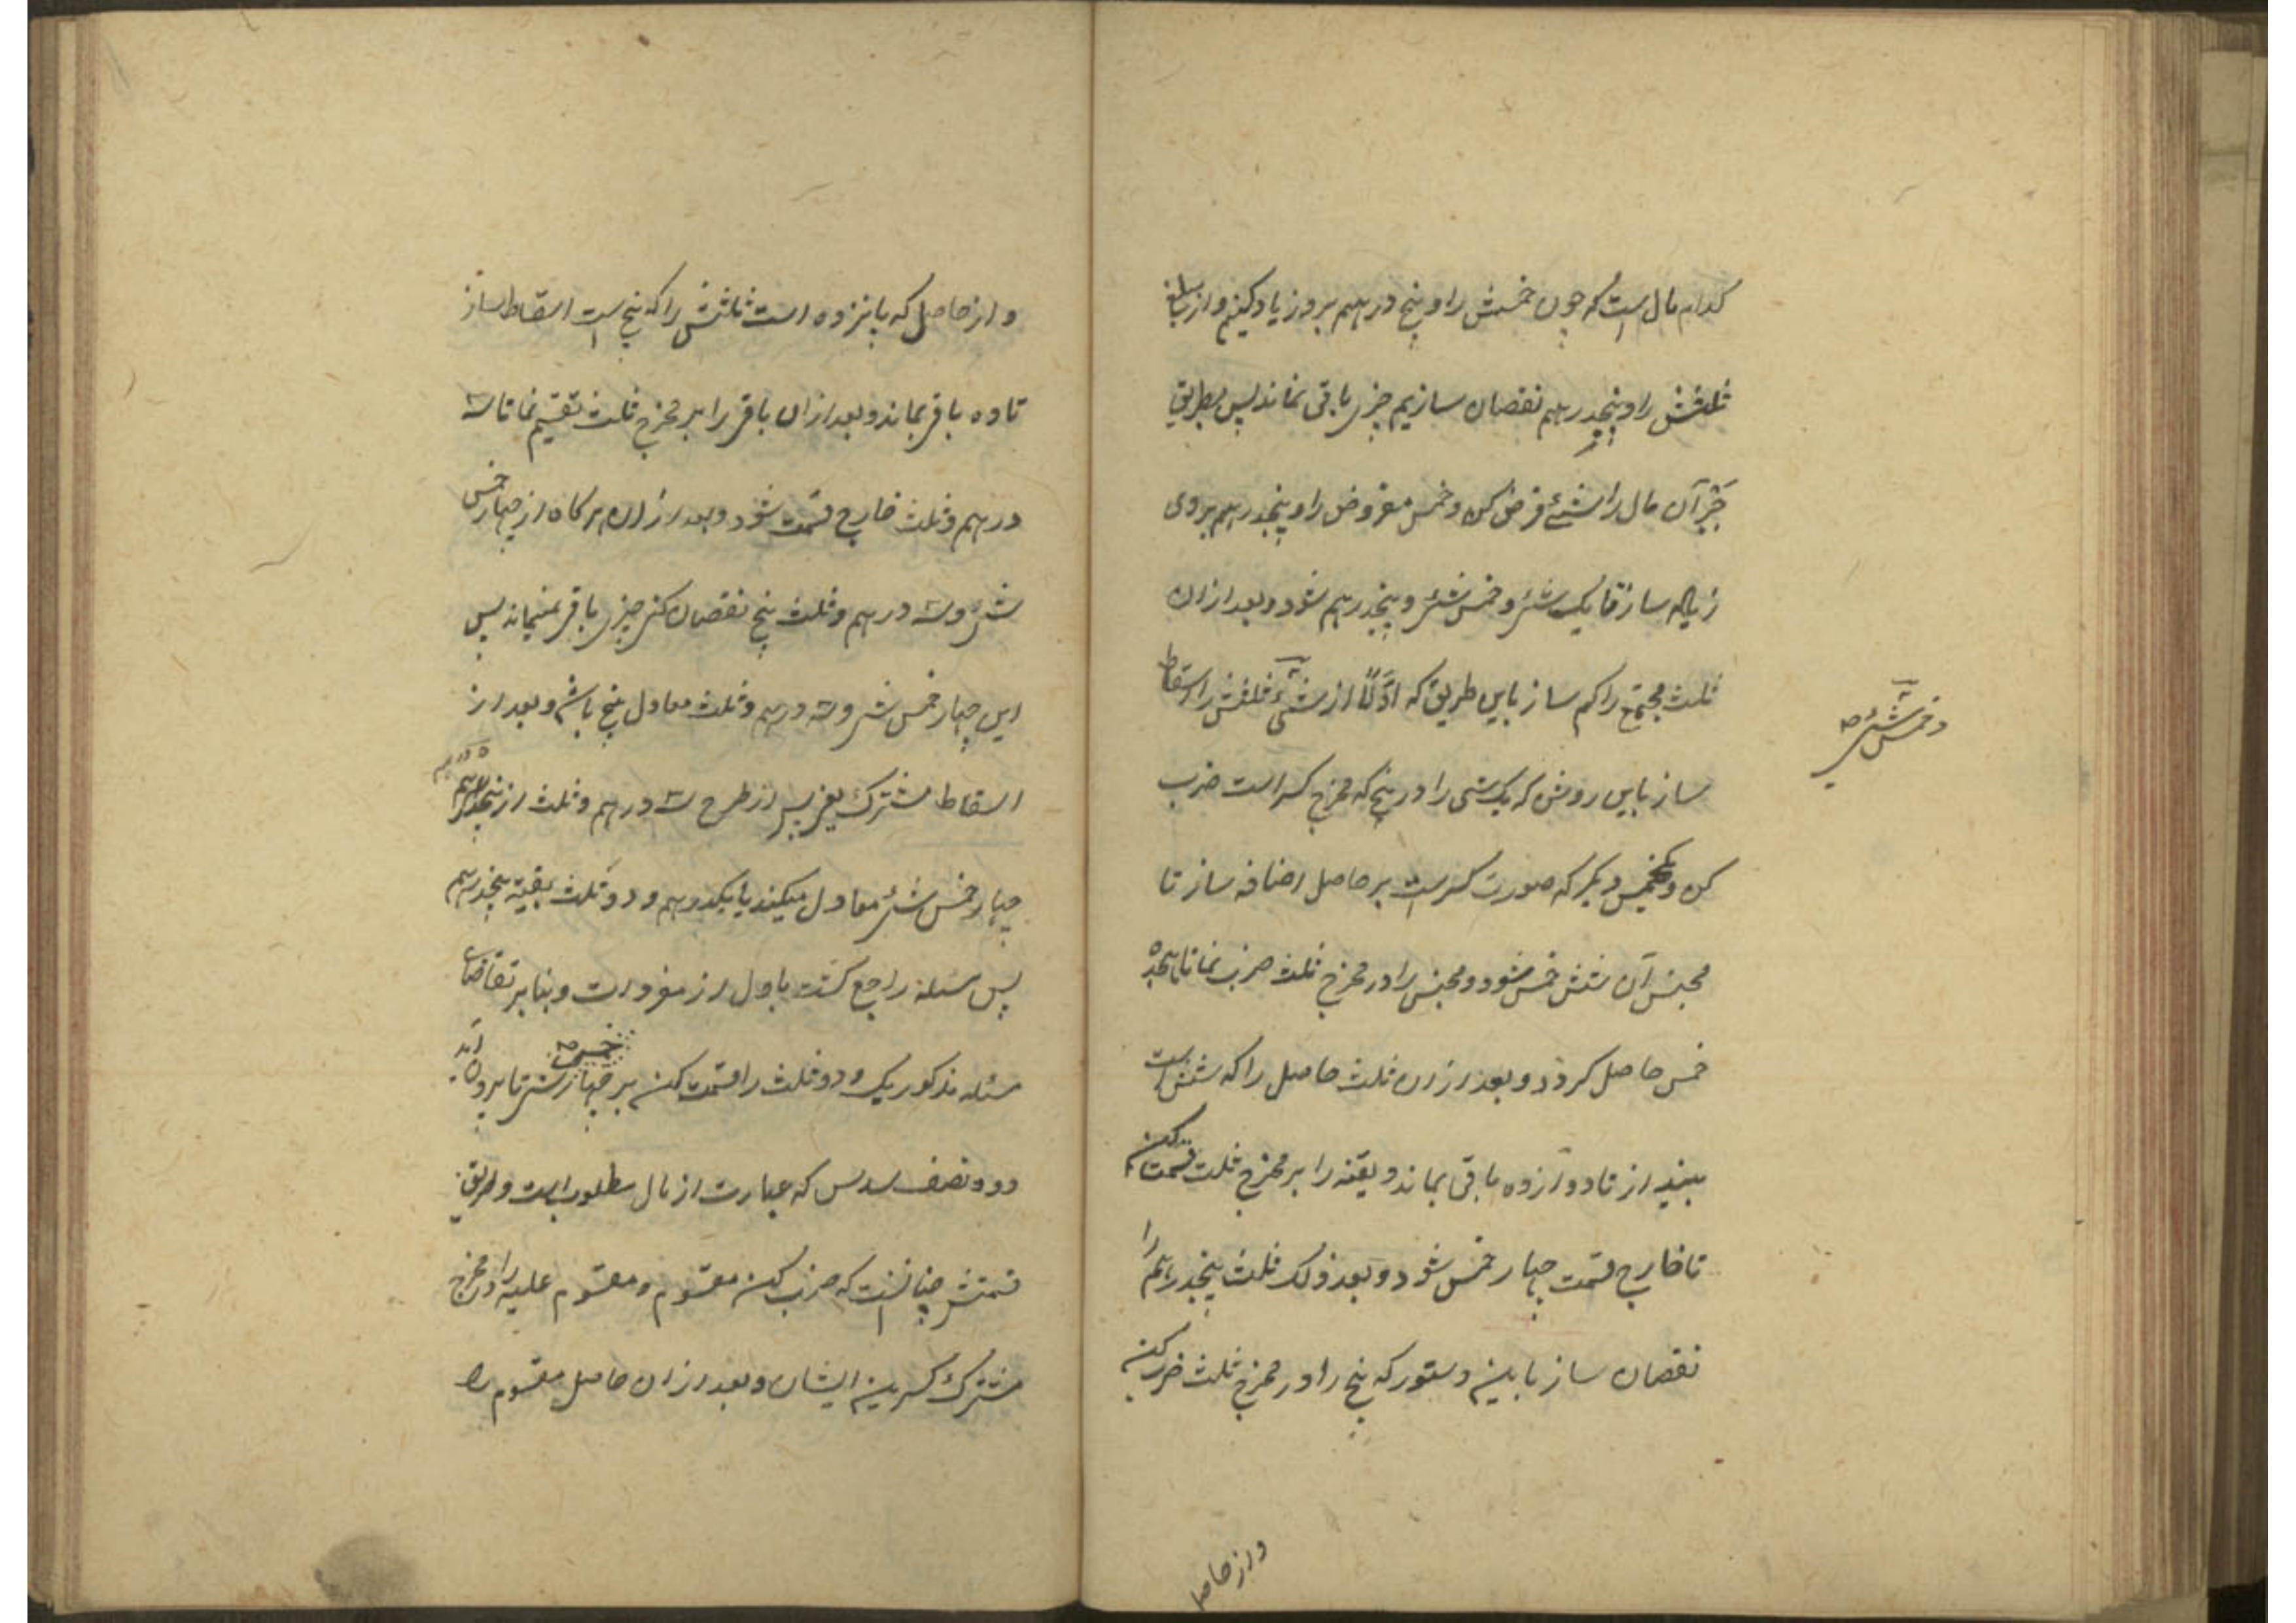 کدام مال است که چون خمسش را و پنج درهم برو زیاد کنیم و از مبلغ
ثلثش را و پنجدرهم نقصان سازیم چیزی باقی نماند پس بطریق
جَبْر آن مال را شئ فرض کن و خمس مفروض را و پنجدرهم بر وی
زیاده ساز تا یک شئ و خمس شئ و پنجدرهم شود و بعد ازان
ثلث مجتمع را کم ساز باین طریق که اوّلاً از شئ ثلثش را اسقاط
و خمس شئ صح
ساز باین روش که یک شی را در پنج که مخرج کسر است ضرب
کن و یکخمس دیگر که صورت کسرست بر حاصل اضافه ساز تا
مجنس آن شش خمس شود و مجنس را در مخرج ثلث ضرب نما تا هیجده
خمس حاصل کردد و بعد ازان ثلث حاصل را که شش است
بینداز تا دوازده باقی بماند و بقیه را بر مخرج ثلث قسمت کن
تا خارج قسمت چهار خمس شود و بعد ذلک ثلث پنجدرهم را
نقصان ساز باین دستور که پنج را در مخرج ثلث ضرب کن
و از حاصل
و از حاصل که پانزده است ثلثش را که پنج است اسقاط ساز
تا ده باقی بماند و بعد ازان باقی را بر مخرج ثلث تقسیم نما تا سه
درهم و ثلث خارج قسمت شود و بعد ازان هر کاه از چهار خمس
شئ و سه درهم و ثلث پنج نقصان کنی چیزی باقی نمیماند پس
این چهار خمس شئ و سه درهم و ثلث معادل پنج باشد و بعد از
اسقاط مشترک یعنی پس از طرح سه درهم و ثلث از پنجدرهم
چهار خمس شئ معادل میکند با یکدرهم و دو ثلث بقیه پنجدرهم
پس مسئله راجع کشت باول از مفردات و بنا بر تقاضای
مسئله مذکور یک و دو ثلث را قسمت کن بر چهار خمس شئ تا برون آید
دو و نصف سدس که عبارت از مال مطلوب است و طریق
قسمتش چنانست که ضرب کن مقسوم و مقسوم علیه را در مخرج
مشترک کسر بین ایشان و بعد ازان حاصل مقسوم را